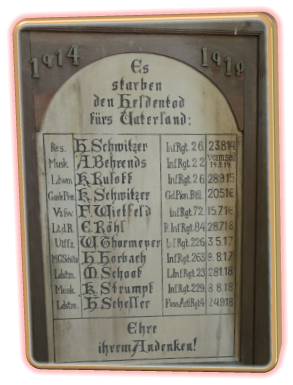 1914 1918
Es
starben
den Heldentod
fürs Vaterland:
Res. H. Schwitzer Inf.Rgt. 26. 23.8.14
Musk. A. Behrends Inf.Rgt. 22. vermisst
K. Kuloff Inf.Rgt. 26. 28.9.15
K. Schwitzer Gd.Pion.Btl. 20.5.16
F. Wietfeld Inf.Rgt. 72. 15.7.16
Lt.d.R. E. Röhl R.Inf.Rgt. 84. 28.7.16
Utffz. W. Thormeyer Inf.Rgt. 226. 3.5.17
H. Horbach Inf.Rgt. 263. 8.8.17
Ldstm. M. Schoof L.Inf.Rgt. 23. 28.1.18
Musk. K. Strumpf Inf.Rgt. 229. 8.8.18
Ldstm. H. Scheller 2.4.9.18
Ehre
ihrem Andenken!